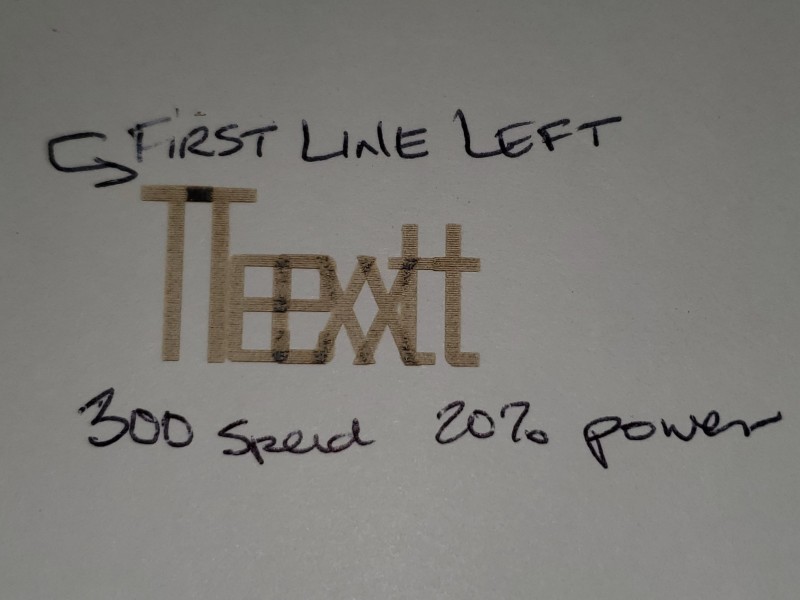 FIRST LINE LEFT
TTeexxtt
300 speed 20% power